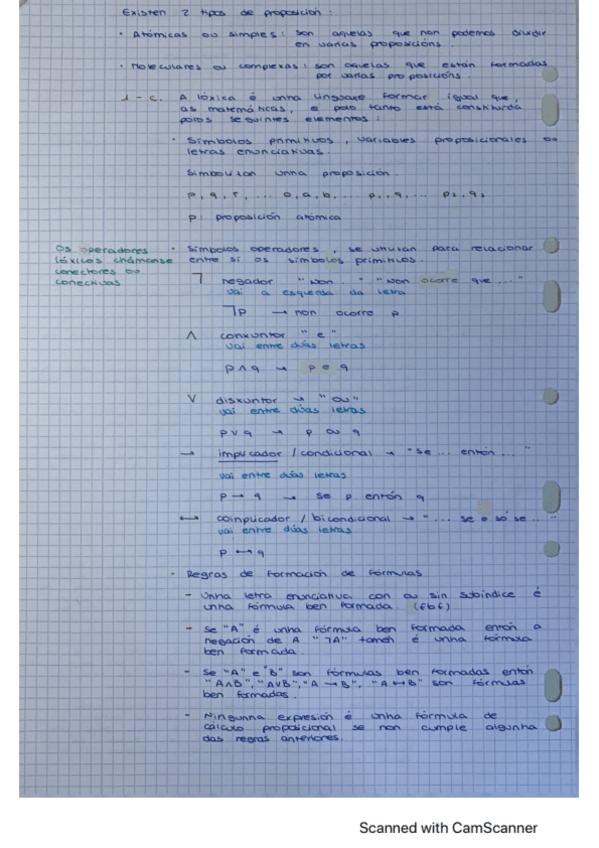 Existen 2 tipos de proposición:
· Atómicas ou simples: son aquelas que non podemos dividir
en varias proposicións.
· Moleculares ou complexas: son aquelas que están formadas
por varias proposicións.
1-c. A lóxica é unha linguaxe formar igual que,
as matemáticas, e polo tanto está constituída
polos seguintes elementos:
· Símbolos primitivos, variables proposicionales ou
letras enunciativas.
Simbolizan unha proposición.
p: proposición atómica
Os operadores
lóxicos chámanse
conectores ou
conectivas
· Símbolos operadores, se utilizan para relacionar
entre sí os símbolos primitivos.
¬ negador "non..." "non ocorre que ..."
vai a esquerda da letra
¬p → non ocorre p
∧ conxuntor "e"
vai entre dúas letras
p ∧ q → p e q
∨ disxuntor → "ou"
vai entre dúas letras
p ∨ q → p ou q
→ implicador / condicional → "se ... entón ..."
vai entre dúas letras
p → q → se p entón q
↔ coimplicador / bicondicional → "... se e só se ..."
vai entre dúas letras
p ↔ q
- Regras de formación de fórmulas
- Unha letra enunciativa con ou sin subíndice é
unha fórmula ben formada. (fbf)
- Se "A" é unha fórmula ben formada entón a
negación de A "¬A" tamén é unha fórmula
ben formada.
- Se "A" e "B" son fórmulas ben formadas entón
"A∧B", "A∨B", "A → B", "A ↔ B" son fórmulas
ben formadas.
- Ningunha expresión é unha fórmula de
cálculo proposicional se non cumple algunha
das regras anteriores.
Scanned with CamScanner